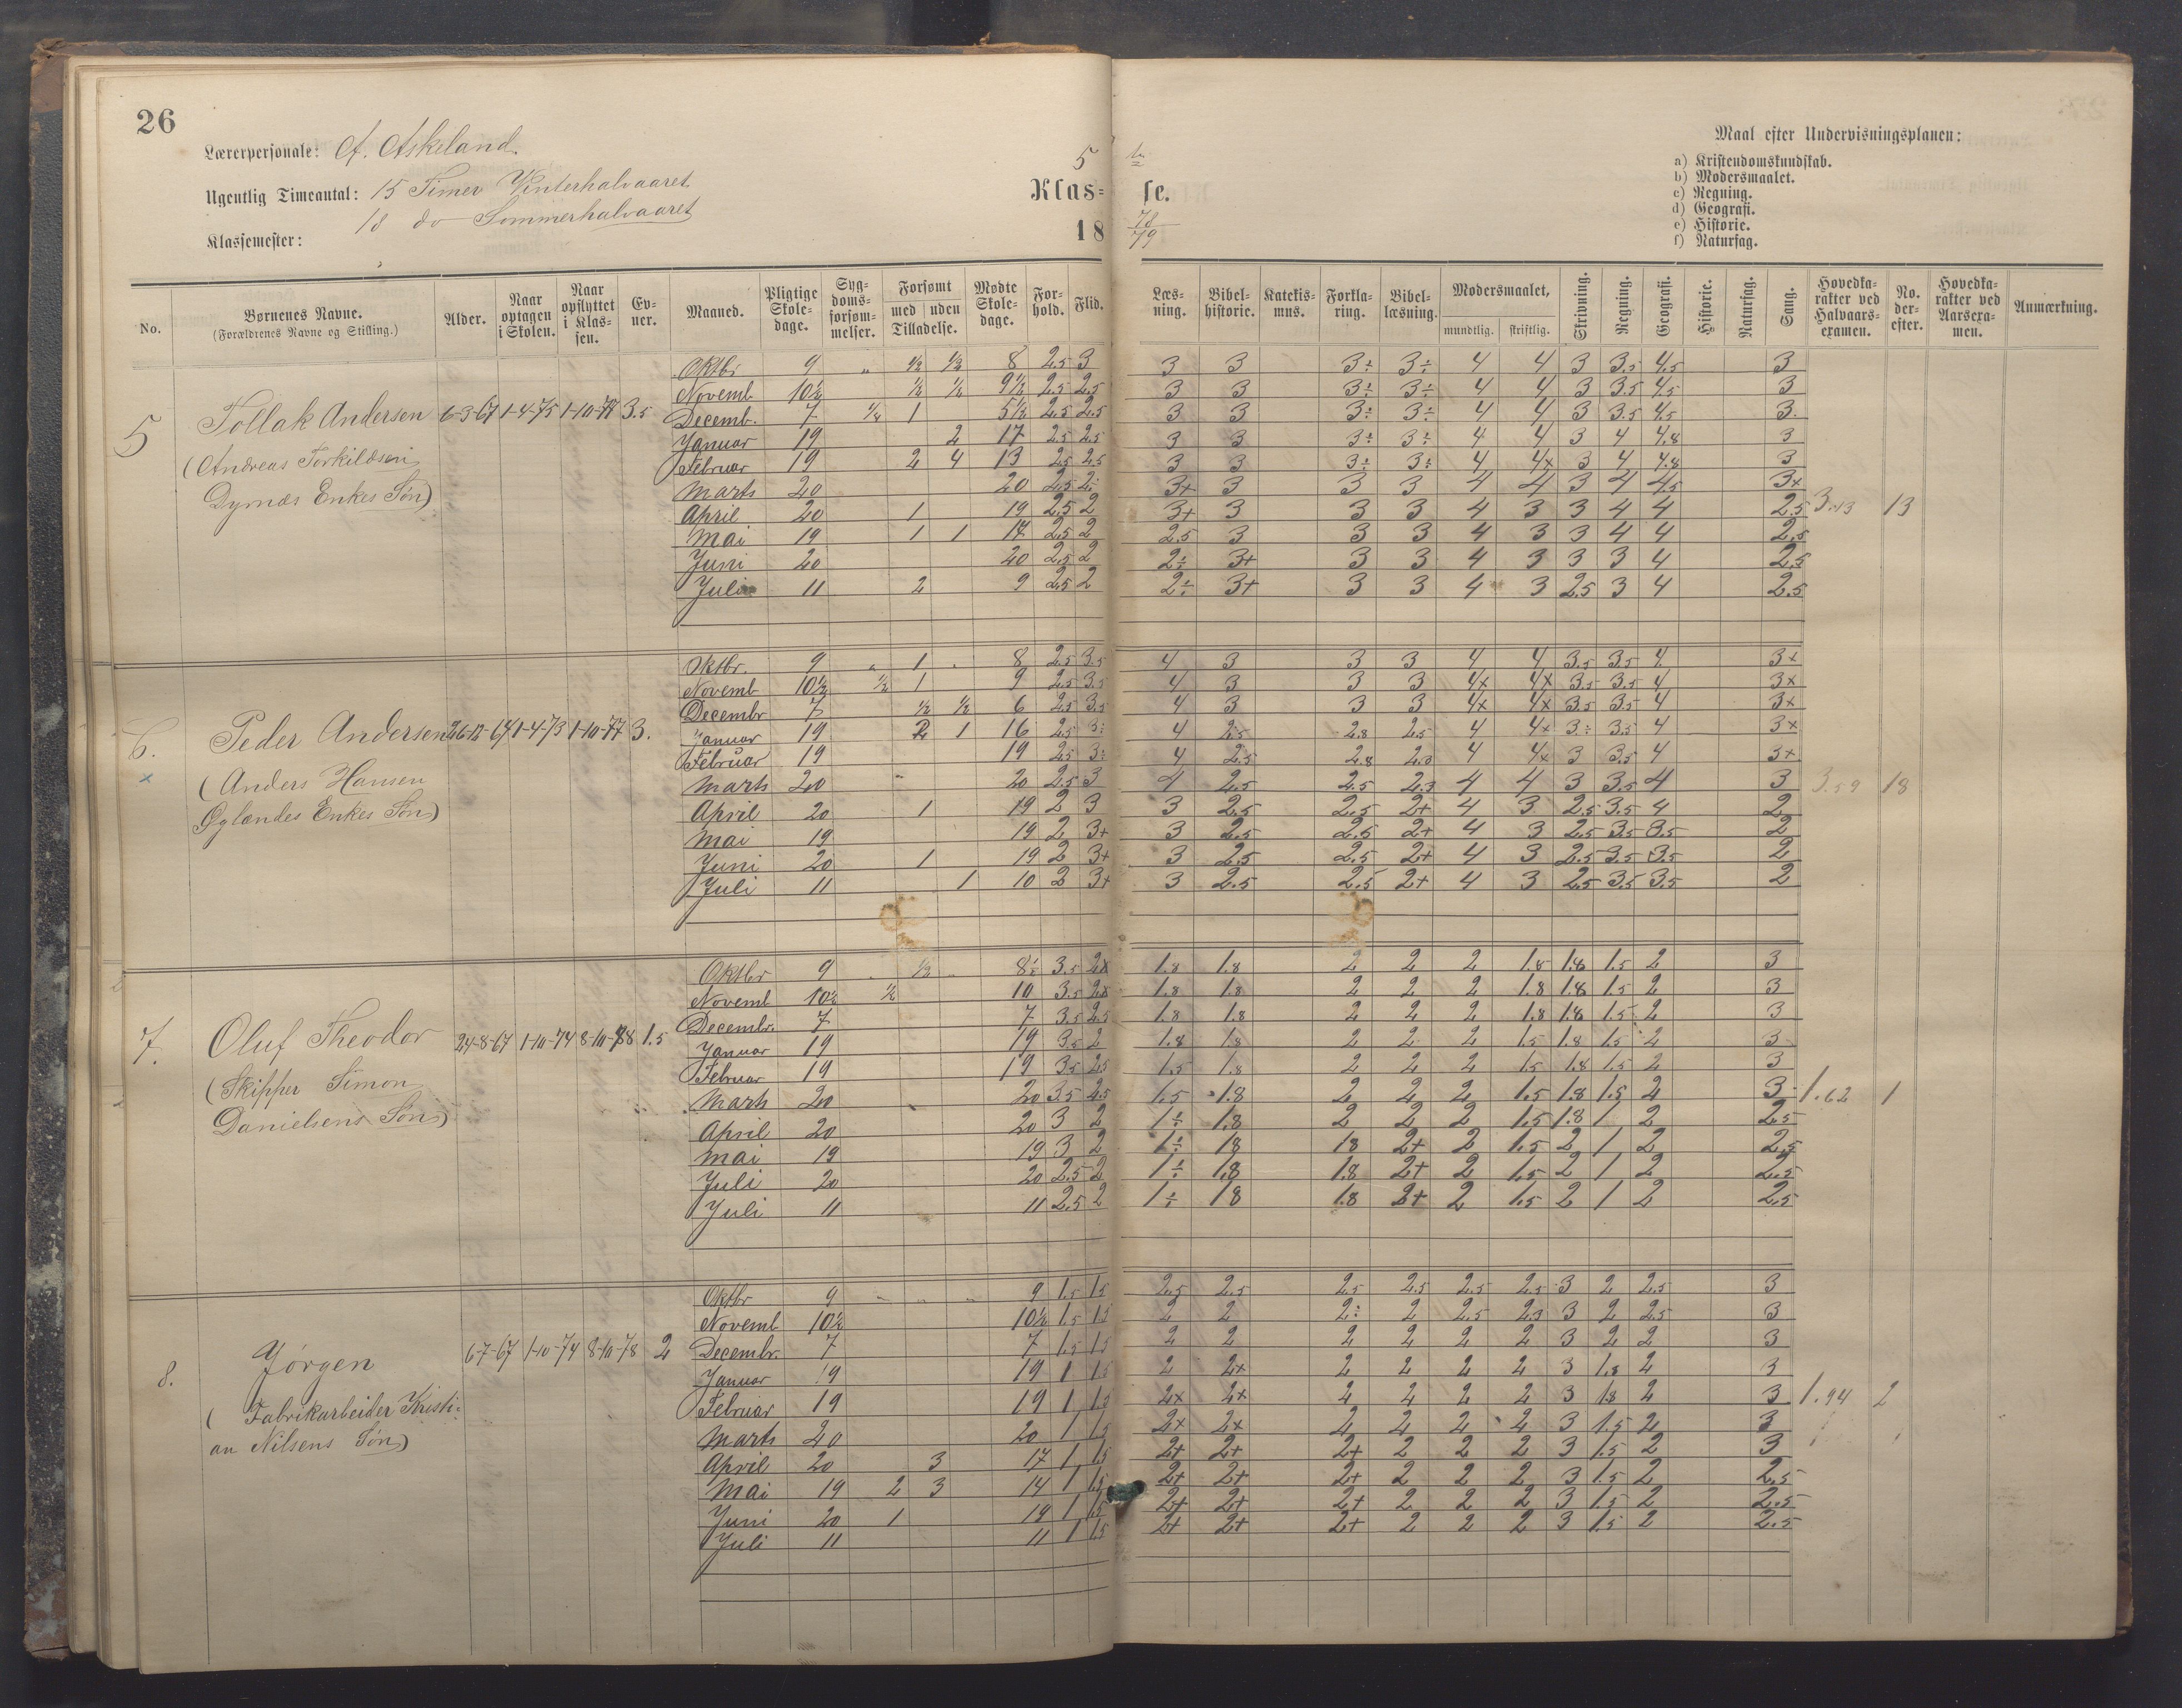 26
Lærerpersonale: A. Askeland.
Ugentlig Timeantal: 15 Timer Vinterhalvaaret
18 do Sommerhalvaaret
Klassemester:
5te
Klasse.
18 78/79
Maal efter Undervisningsplanen:
a) Kristendomskundskab.
b) Modersmaalet.
c) Regning.
d) Geografi.
e) Historie.
f) Naturfag.
No. Børnenes Navne. (Forældrenes Navne og Stilling.) Alder. Naar optagen i Skolen. Naar opflyttet i Klassen. Evner. Maaned. Pligtige Skoledage. Sygdomsforsømmelser. Forsømt med uden Tilladelse. Mødte Skoledage. Forhold. Flid. Læsning. Bibelhistorie. Katekismus. Forklaring. Bibellæsning. Modersmaalet, mundtlig. skriftlig. Skrivning. Regning. Geografi. Historie. Naturfag. Sang. Hovedkarakter ved Halvaarsexamen. No. derefter. Hovedkarakter ved Aarsexamen. Anmærkning.
Oktbr 9 „ ½ ½ 8 2.5 3 3 3 3÷ 3÷ 4 4 3 3.5 4.5 3
Novemb. 10½ ½ ½ 9½ 2.5 2.5 3 3 3÷ 3÷ 4 4 3 3.5 4.5 3
5 Tollak Andersen 6-3-67 1-4-75 1-10-77 3.5 Decemb. 7 ½ 1 5½ 2.5 2.5 3 3 3÷ 3÷ 4 4 3 3.5 4.5 3
Januar 19 2 17 2.5 2.5 3 3 3÷ 3÷ 4 4 3 4 4.8 3
(Andreas Torkildsen Februar 19 2 4 13 2.5 2.5 3 3 3÷ 3÷ 4 4x 3 4 4.8 3
Dyrnæs Enkes Søn) Marts 20 20 2.5 2 3+ 3 3 3 4 4 3 4 4.5 3+
April 20 1 19 2.5 2 3+ 3 3 3 4 3 3 4 4 2.5 3.13 13
Mai 19 1 1 17 2.5 2 2.5 3 3 3 4 3 3 4 4 2.5
Juni 20 20 2.5 2 2÷ 3+ 3 3 4 3 3 3 4 2.5
Juli 11 2 9 2.5 2 2÷ 3+ 3 3 4 3 2.5 3 4 2.5
Oktbr. 9 „ 1 „ 8 2.5 3.5 4 3 3 3 4 4 3.5 3.5 4 3+
Novemb 10½ ½ 1 9 2.5 3.5 4 3 3 3 4x 4x 3.5 3.5 4 3x
Decembr 7 ½ ½ 6 2.5 3.5 4 3 3 3 4x 4x 3.5 3.5 4 3+
6. Peder Andersen 26-12-67 1-4-73 1-10-77 3. Januar 19 2 1 16 2.5 3÷ 4 2.5 2.8 2.5 4 4x 3÷ 3.5 4 3x
Februar 19 19 2.5 3÷ 4 2.5 2.8 2.3 4 4x 3 3.5 4 3+
(Anders Hansen Marts 20 20 2.5 3 4 2.5 2.5 2.3 4 4 3 3.5 4 3 3.59 18
Gylandes Enkes Søn) April 20 1 19 2 3 3 2.5 2.5 2+ 4 3 2.5 3.5 4 2
Mai 19 19 2 3+ 3 2.5 2.5 2+ 4 3 2.5 3.5 3.5 2
Juni 20 1 19 2 3+ 3 2.5 2.5 2+ 4 3 2.5 3.5 3.5 2
Juli 11 1 10 2 3+ 3 2.5 2.5 2+ 4 3 2.5 3.5 3.5 2
Oktbr 9 „ ½ „ 8½ 3.5 2x 1.8 1.8 2 2 2 1.8 1.8 1.5 2 3
Novemb 10½ ½ 10 3.5 2x 1.8 1.8 2 2 2 1.8 1.8 1.5 2 3
Decembr. 7 7 3.5 2.5 1.8 1.8 2 2 2 1.8 1.8 1.5 2 3
7. Oluf Theodor 24-8-67 1-10-74 8-10-78 1.5 Januar 19 19 3.5 2 1.8 1.8 2 2 2 1.5 1.8 1.5 2 3
Februar 19 19 3.5 2.5 1.5 1.8 2 2 2 1.5 1.8 1.5 2 3
(Skipper Simon Marts 20 20 3.5 2.5 1.5 1.8 2 2 2 1.5 1.8 1.5 2 3 1.62 1
Danielsens Søn) April 20 20 3 2 1÷ 1.8 2 2 2 1.5 1.8 1 2 2.5
Mai 19 19 3 2 1÷ 18 18 2+ 2 1.5 2 1 2 2.5
Juli 20 20 2.5 2 1÷ 1.8 1.8 2+ 2 1.5 2 1 2 2.5
Juli 11 11 2.5 2 1÷ 18 1.8 2+ 2 1.5 2 1 2 2.5
Oktbr 9 „ „ „ 9 1.5 1.5 2.5 2.5 2.5 2.5 2.5 2.5 3 2 2.5 3
Novemb 10½ 10½ 1.5 1.5 2 2 2÷ 2 2.5 2.3 3 2 2.5 3
8. Jørgen 6-7-67 1-10-74 8-10-78 2 Decembr. 7 7 1.5 1.5 2 2 2 2 2 2 3 2 2 3
Januar 19 19 1 1.5 2 2x 2 2 2 2 3 1.8 2 3
(Fabrikarbeider Kristi- Februar 19 19 1 1.5 2x 2x 2 2 2 2 3 1.8 2 3 1.94 2
an Nilsens Søn) Marts 20 20 1 1.5 2x 2x 2 2 2 2 3 1.5 2 3
April 20 3 17 1 1.5 2+ 2+ 2+ 2 2 2 3 1.5 2 3
Mai 19 2 3 14 1 1.5 2+ 2+ 2+ 2 2 2 3 1.5 2 2.5
Juni 20 1 19 1 1.5 2+ 2+ 2+ 2 2 2 3 1.5 2 2.5
Juli 11 11 1 1.5 2+ 2+ 2+ 2 2 2 3 1.5 2 2.5